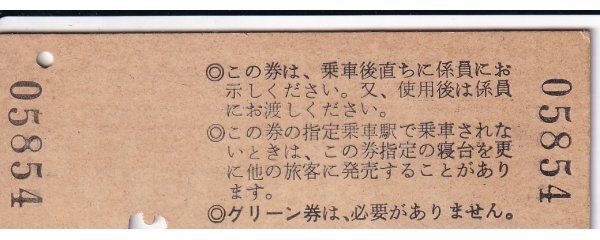 05854
◎この券は、乗車後直ちに係員にお
示しください。又、使用後は係員
にお渡しください。
◎この券の指定乗車駅で乗車されな
いときは、この券指定の寝台を更
に他の旅客に発売することがあり
ます。
◎グリーン券は、必要がありません。
05854